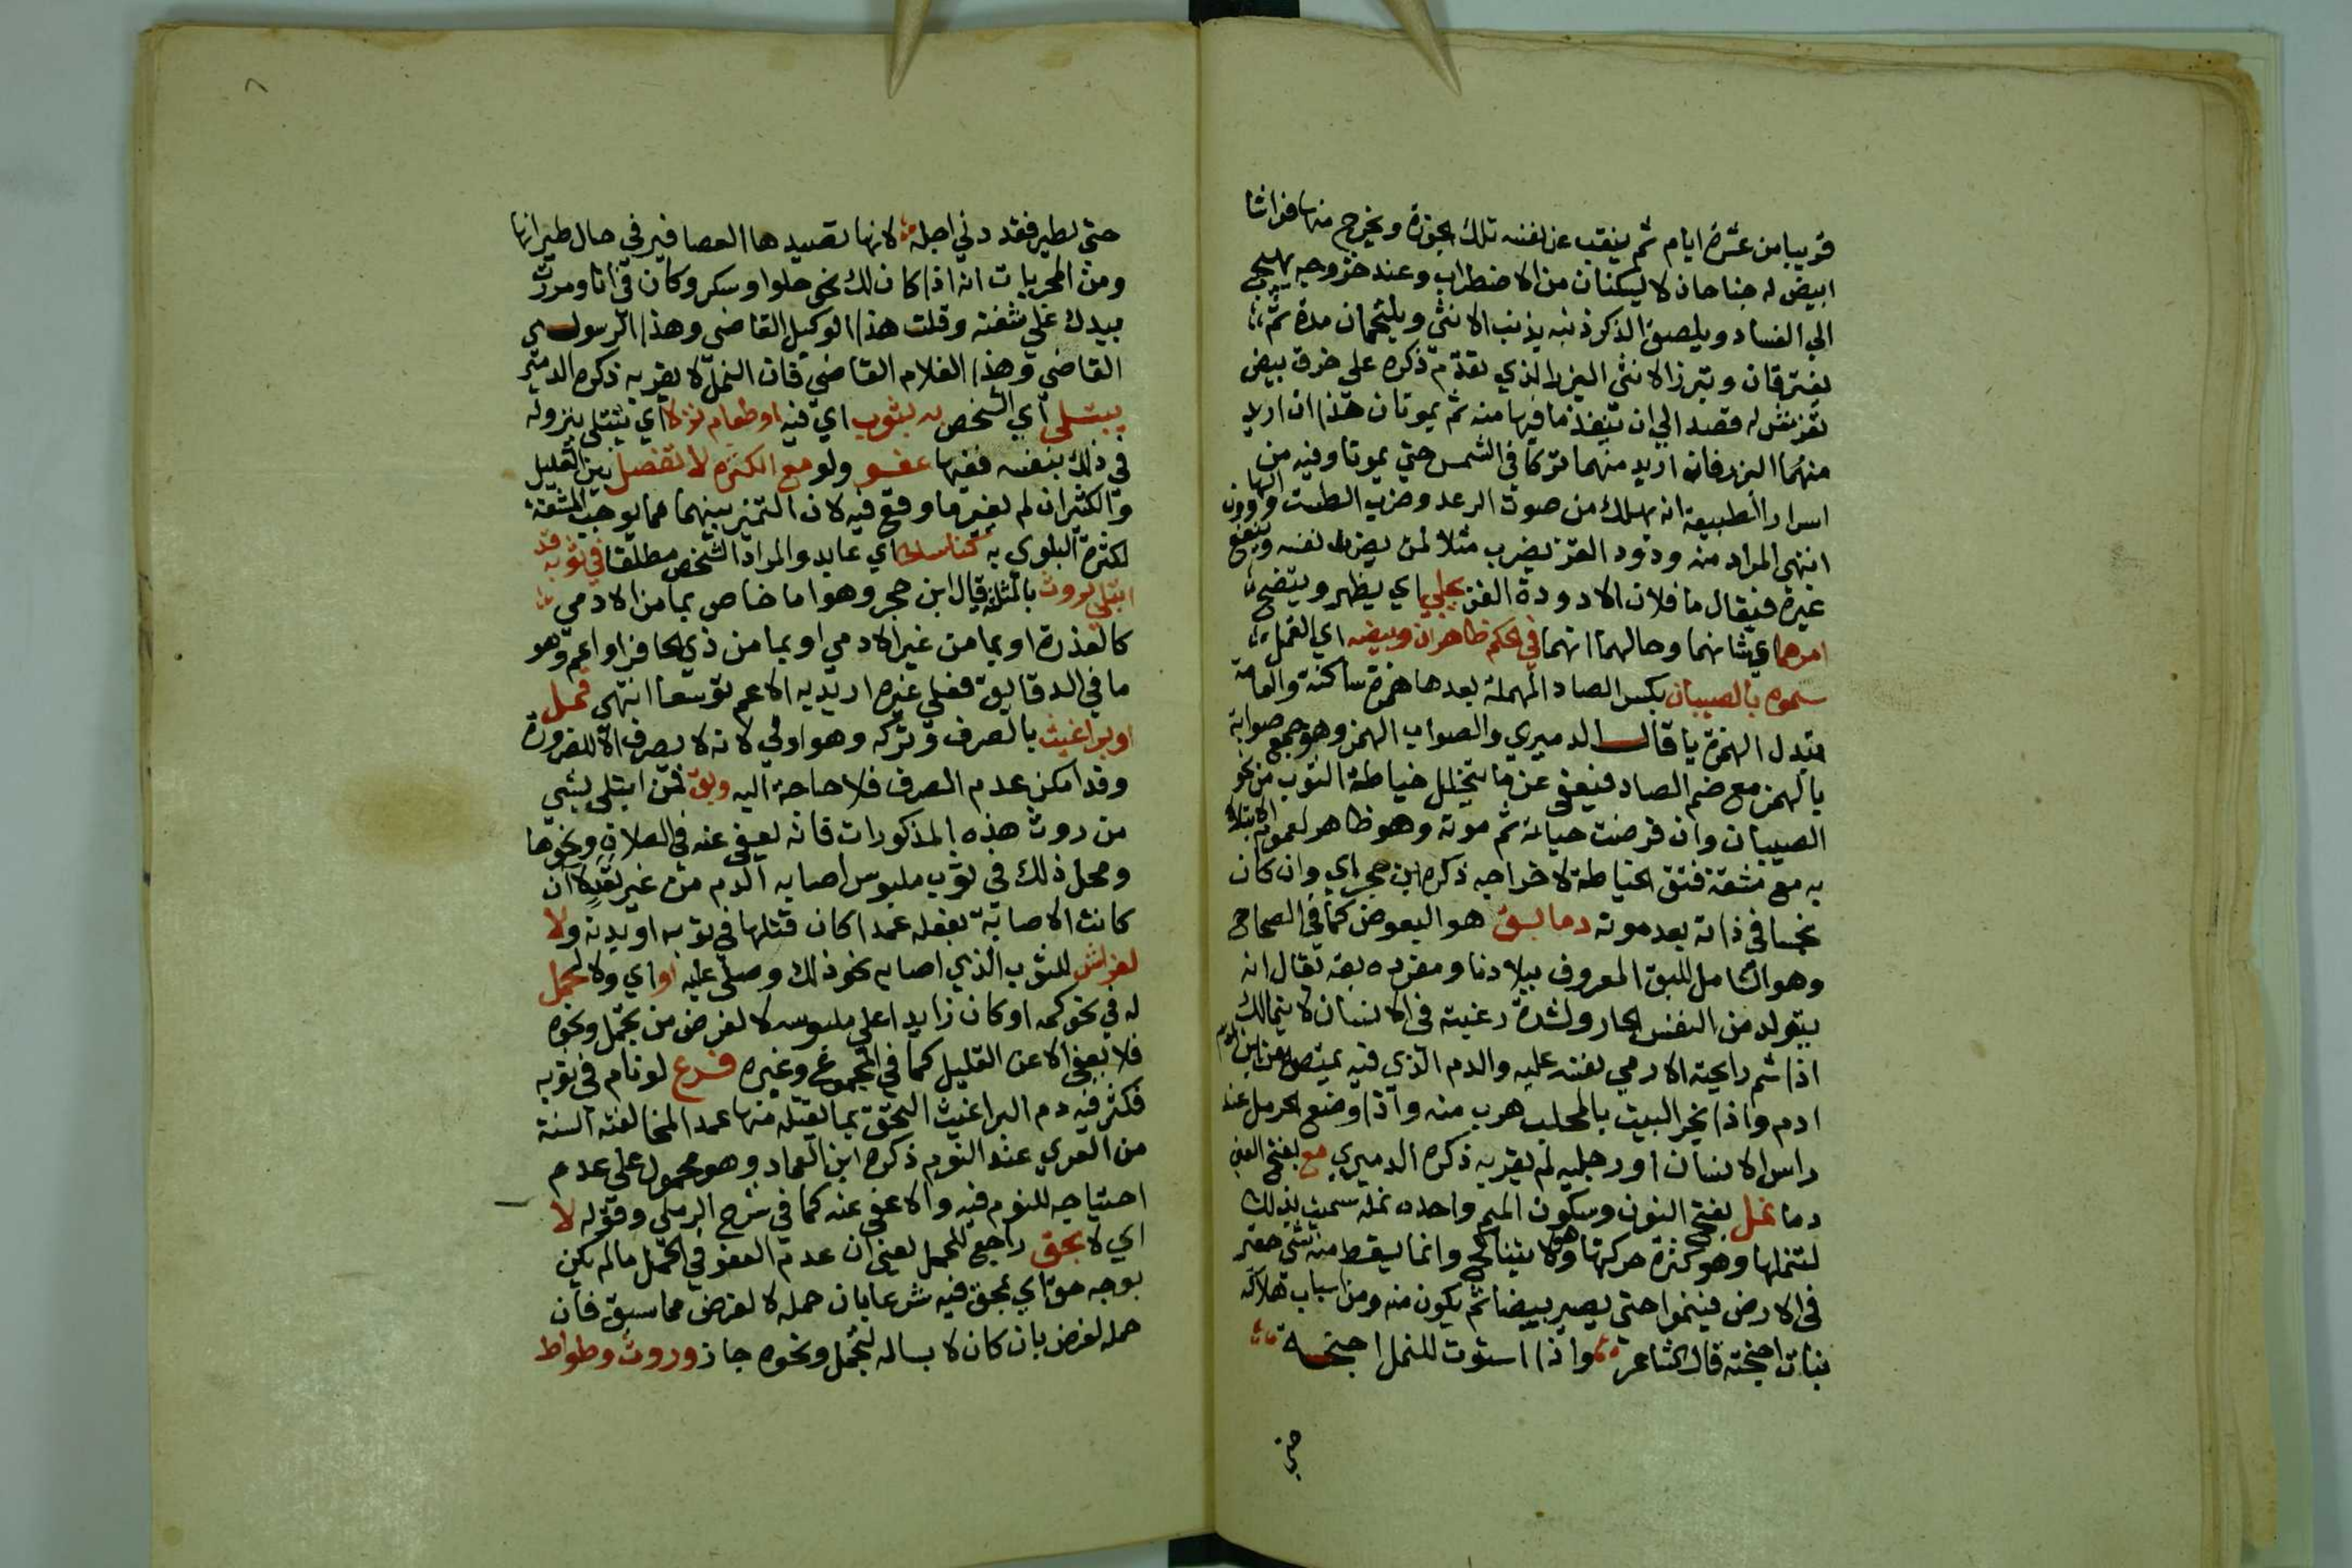 قريبا من عشرة ايام ثم ينقب عن نفسه تلك الجوزة ويخرج منها فراشا
ابيض له جناحان لا يسكنان من الاضطراب وعند خروجه يهيج
الي الفساد ويلصق الذكر ذنبه بذنب الانثي ويلتحمان مدة ثم
يفترقان وتبرز الانثي البزر الذي تقدم ذكره علي خرق بيض
تفرش له قصدا الي ان تنفذ ما فيها منه ثم يموتان هذا ان اريد
منهما البزر فان اريد منهما تركا في الشمس حتي يموتا وفيه من
اسرار الطبيعة انه يهلك من صوت الرعد وضرب الطست والهاون
انتهي المراد منه ودود القز يضرب مثلا لمن يضر نفسه وينفع
غيره فيقال ما فلان الا دودة القز يجلي اي يظهر ويتضح
امرهما اي شانهما وحالهما انهما في الحكم ظاهران وبيضه اي القمل
سموه بالصيبان بكسر الصاد المهملة بعدها همزة ساكنة والعامة
تبدل الهمزة يا قال الدميري والصواب الهمز وهو جمع صوابة
بالهمز مع ضم الصاد فيعفي عن ما يتخلل خياطة الثوب من نحو
الصيبان وان فرضت حياته ثم موته وهو ظاهر لعموم الابتلاء
به مع مشقة فتق الخياطة لاخراجه ذكره ابن حجر اي وان كان
نجسا في ذاته بعد موته دما بق هو البعوض كما في الصحاح
وهو الشامل للبق المعروف ببلادنا ومفرده بقة يقال انه
يتولد من النفس الحار ولشدة رغبته في الانسان لا يتمالك
اذا شم رايحته الا رمي نفسه عليه والدم الذي فيه يمتصه من ابن ادم
ادم واذا بخر البيت بالمحلب هرب منه واذا وضع الحرمل عند
راس الانسان او رجليه لم يقربه ذكره الدميري مع بفتح العين
دما نمل بفتح النون وسكون الميم واحده نملة سميت بذلك
لتنملها وهو كثرة حركتها وهو لا يتناكح وانما يسقط منه شي حقير
في الارض فينموا حتي يصير بيضا ثم يكون منه ومن اسباب هلاكه
نبات اجنحته قال الشاعر واذا استوت للنمل اجنحة
حتي
٨
حتي يطير فقد دني اجله لانها تصيدها العصافير في حال طيرانها
ومن المجربات انه اذا كان لك نحو حلوا وسكر وكان في انا ومررت
بيدك علي شفته وقلت هذا الوكيل القاضي وهذا الرسول
القاضي وهذا الغلام القاضي فان النمل لا يقربه ذكره الدميري
يبتلي اي الشخص به بثوب اي فيه او طعام نزلا اي يبتلي بنزوله
في ذلك بنفسه ففيها عفو ولو مع الكثرة لا تفصل بين القليل
والكثير ان لم يغير ما وقع فيه لان التميز بينهما مما يوجب المشقة
لكثرة البلوي به كناسك اي عابد والمراد الشخص مطلقا في ثوبه قد
ابتلي بروث بالمثلثة قال ابن حجر وهو اما خاص بما من الادمي
كالعذرة او بما من غير الادمي او بما من ذي الحافر او اعم وهو
ما في الدقايق فعلي غيره اريد به الاعم توسعا انتهي قمل
او براغيث بالصرف وتركه وهو اولي لانه لا يصرف الا للضرورة
وقد امكن عدم الصرف فلا حاجة اليه وبق فمن ابتلي بشي
من روث هذه المذكورات فانه يعفي عنه في الصلاة ونحوها
ومحل ذلك في ثوب ملبوس اصابه الدم من غير تعد لا ان
كانت الاصابة بفعله عمدا كان قتلها في ثوبه او بدنه ولا
لفراش للثوب الذي اصابه نحو ذلك وصلي عليه او اي ولا لحمل
له في نحو كمه او كان زايدا علي ملبوسه لا لغرض من تجمل ونحوه
فلا يعفي الا عن القليل كما في المجموع وغيره فرع لو نام في ثوبه
فكثر فيه دم البراغيث التحق بما يقتله منها عمدا لمخالفته السنة
من العري عند النوم ذكره ابن العماد وهو محمول علي عدم
احتياجه للنوم فيه والا عفي عنه كما في شرح الرملي وقوله لا
اي لا بحق راجع للحمل يعني ان عدم العفو في الحمل ما لم يكن
بوجه حق اي بحق فيه شرعا بان حمله لا لغرض مما سبق فان
حمله لغرض بان كان لابسا له لتجمل ونحوه جاز وروث وطواط